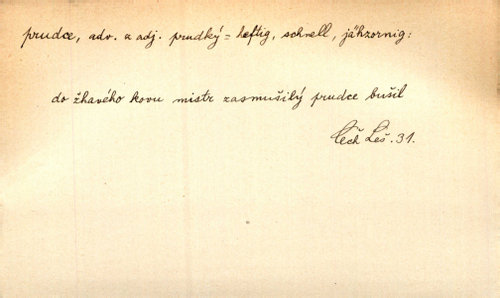 prudce, adv. u adj. prudký = heftig, schnell, jähzornig:
do žhavého kovu mistr zasmušilý prudce bušil
Čech Leš. 31.